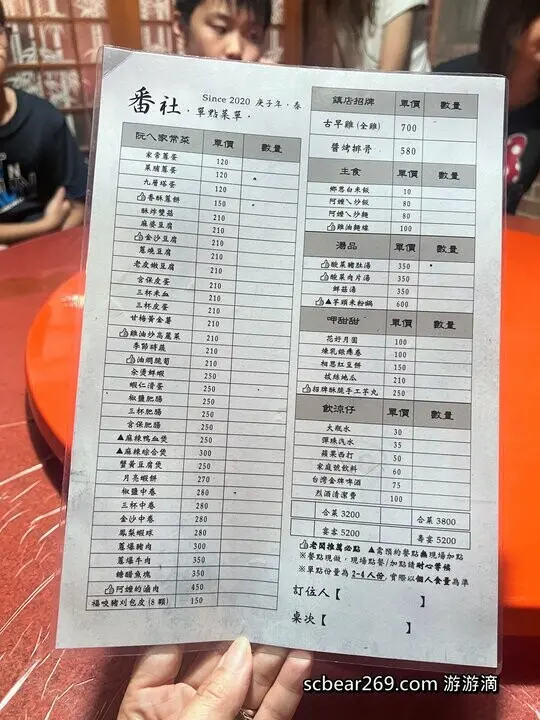 番社
Since 2020 庚子年，春
．單點菜單．
阮ㄟ家常菜 單價 數量
家常蔥蛋 120
菜脯蔥蛋 120
九層塔蛋 120
香酥蔥餅 150
酥炸雙菇 210
麻婆豆腐 210
金沙豆腐 210
蔥燒豆腐 210
老皮嫩豆腐 210
宮保皮蛋 210
三杯米血 210
三杯皮蛋 210
甘梅黃金薯 210
雞油炒高麗菜 210
季節時蔬 210
油燜脆筍 210
汆燙鮮蝦 250
蝦仁滑蛋 250
椒鹽肥腸 250
三杯肥腸 250
宮保肥腸 250
▲麻辣鴨血煲 250
▲麻辣綜合煲 300
蟹黃豆腐煲 250
月亮蝦餅 270
椒鹽中卷 280
三杯中卷 280
金沙中卷 280
鳳梨蝦球 280
蔥爆豬肉 300
蔥爆牛肉 350
糖醋魚塊 350
阿嬤的滷肉 450
福咬豬刈包皮(8顆) 150
鎮店招牌 單價 數量
古早雞(全雞) 700
醬烤排骨 580
主食 單價 數量
鄉思白米飯 10
阿嬤ㄟ炒飯 80
阿嬤ㄟ炒麵 80
雞油麵線 100
湯品 單價 數量
酸菜豬肚湯 350
酸菜肉片湯 350
鮮菇湯 350
▲芋頭米粉鍋 600
呷甜甜 單價 數量
花好月圓 100
煉乳銀卷 100
相思紅豆餅 150
拔絲地瓜 210
招牌酥脆手工芋丸 250
飲涼仔 單價 數量
大瓶水 30
彈珠汽水 35
蘋果西打 50
家庭號飲料 60
台灣金牌啤酒 75
烈酒清潔費 100
合菜 3200 合菜 3800
宴客 5200 壽宴 5200
老闆推薦必點 ▲需預約餐點無現場加點
※餐點現做，現場點餐/加點請耐心等候
※單點份量為2-4人份，實際以個人食量為準
訂位人【 】
桌次【 】
scbear269.com 游游滴